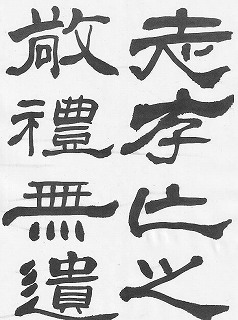 志存亡之
敬禮無遺